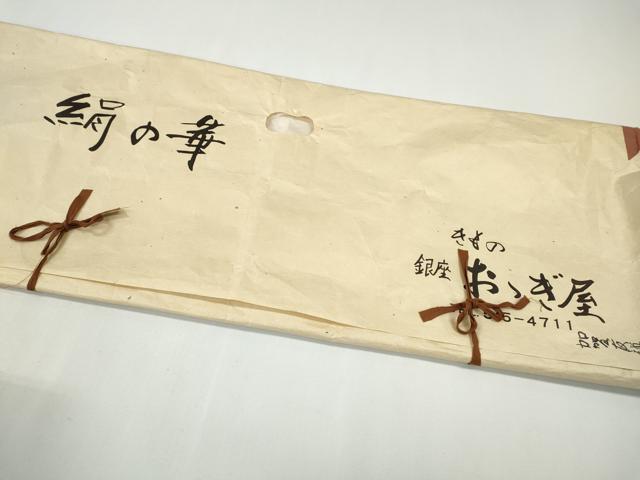 絹の華
きもの
銀座 おゝぎ屋
5-4711
加賀友